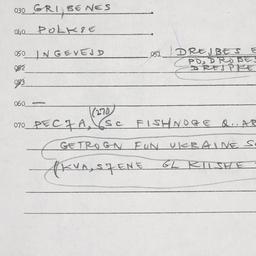 030 GRI, BE NES
040 POLKSE
050 INGEVEJD 051 DREJBES E
052 PO, DROBES
053 DREJPKE
060 —
070 PEC7A, (270) SC FISHNOGE Q.. AB
GETROGN FUN UKRAINE S
KVA, S7ENE GL KIISHE